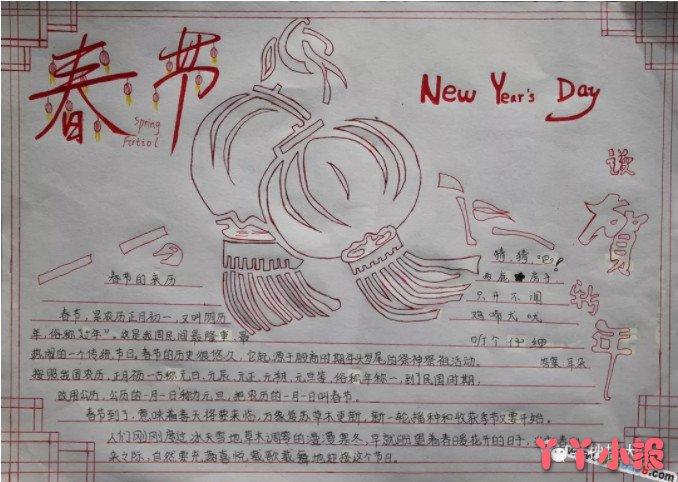 春节
spring
Fertiol
New Year's Day
贺
年
春节的来历
春节，是农历正月初一，又叫阴历
年，俗称"过年"。这是我国民间最隆重、最
热闹的一个传统节日。春节的历史很悠久，它起源于殷商时期年头岁尾的祭神祭祖活动。
按照我国农历，正月初一古称元日、元辰、元正、元朔、元旦等，俗称年初一，到了民国时期，
改用公历，公历的一月一日称为元旦，把农历的一月一日叫春节。
春节到了，意味着春天将要来临，万象复苏草木更新，新一轮播种和收获季节又要开始。
人们刚刚度过冰天雪地草木凋零的漫漫寒冬，早就盼望着春暖花开的日子，
来之际，自然要充满喜悦载歌载舞地迎接这个节日。
猜猜吧！
房子
只开不闻
鸡啼犬吠
听个仔细
答案：耳朵
丫丫小报